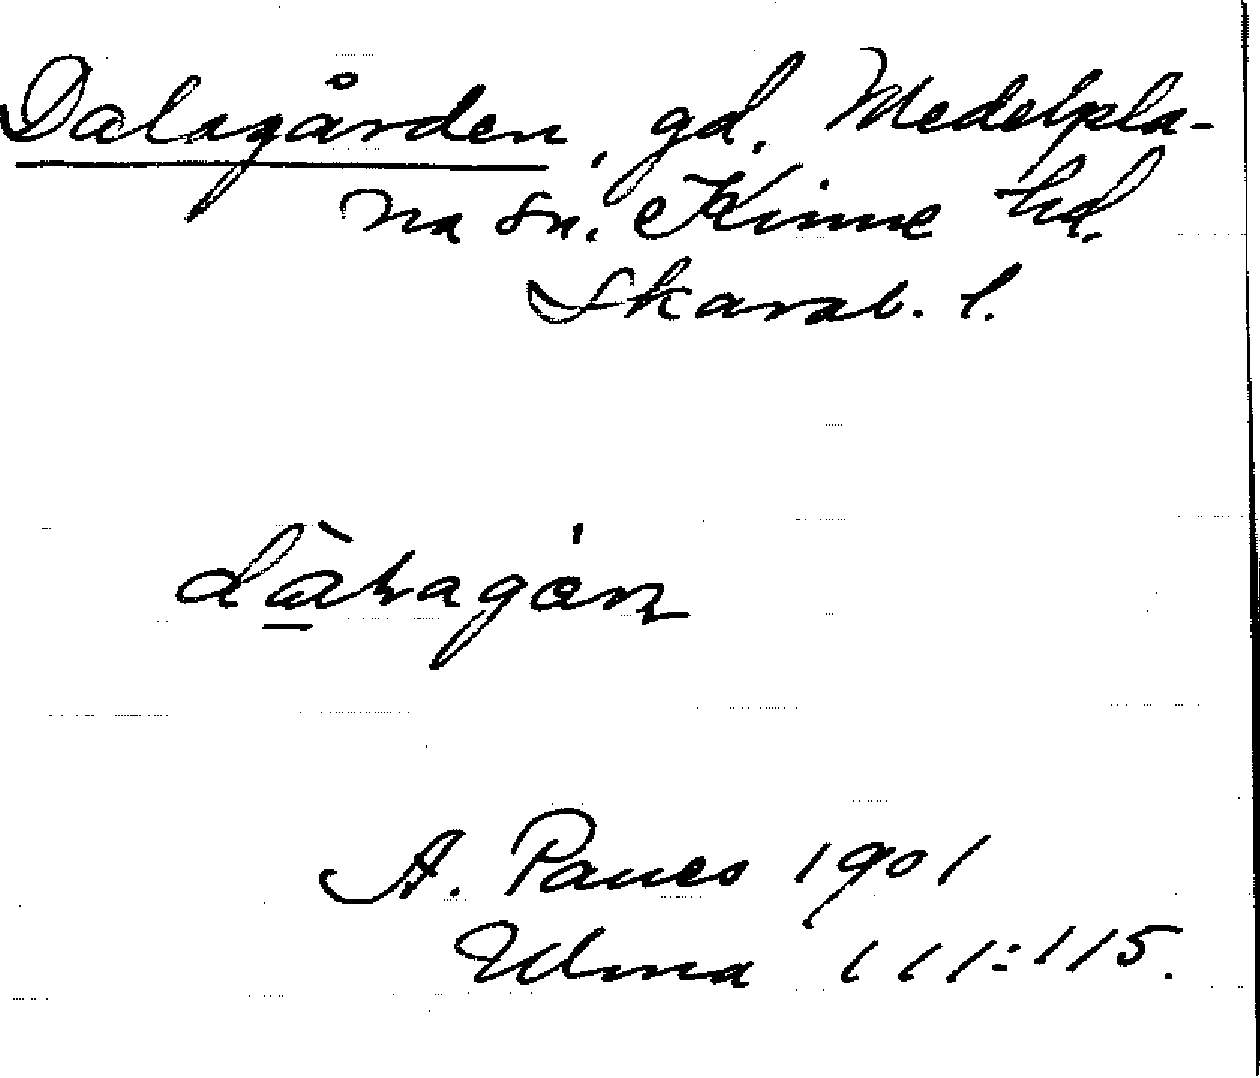 Dalagården, gd. Medelpla-
na sn. Kinne hd.
Skarab. l.
A. Paues 1901
Ulma 111:115.